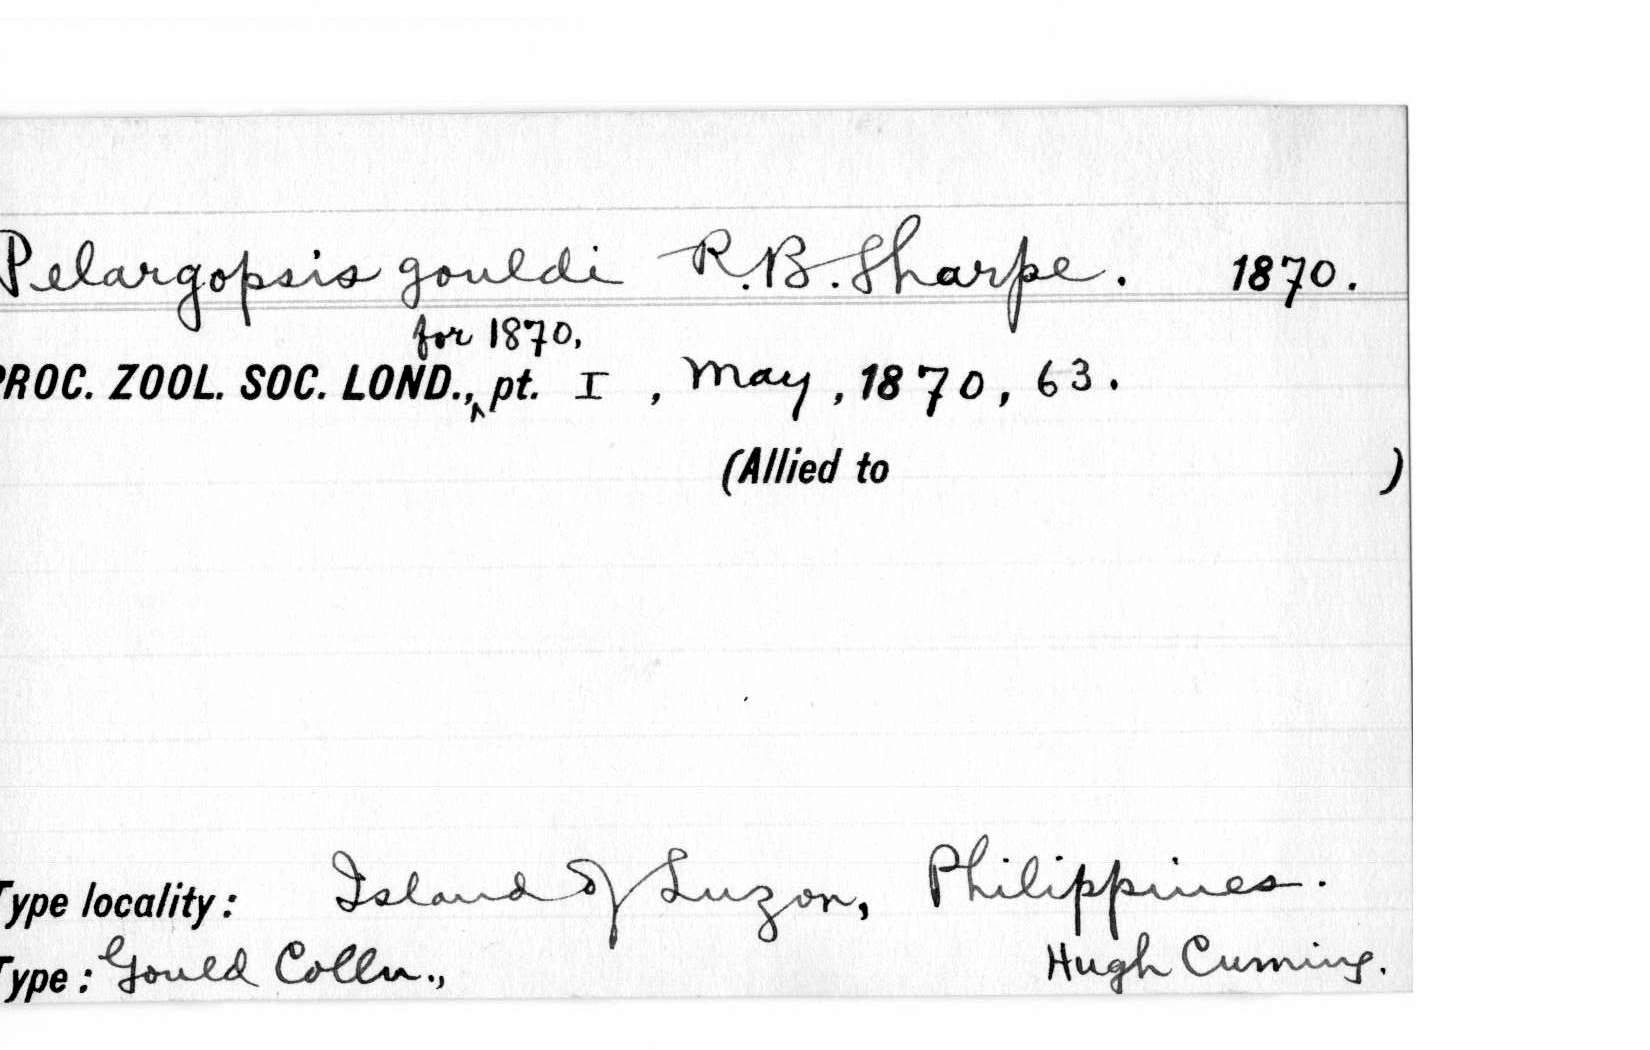 Pelargopsis gouldi R.B. Sharpe. 1870.
for 1870,
PROC. ZOOL. SOC. LOND., pt. I, May, 1870, 63.
(Allied to )
Type locality: Island of Luzon, Philippines.
Type: Gould Colln., Hugh Cuming.